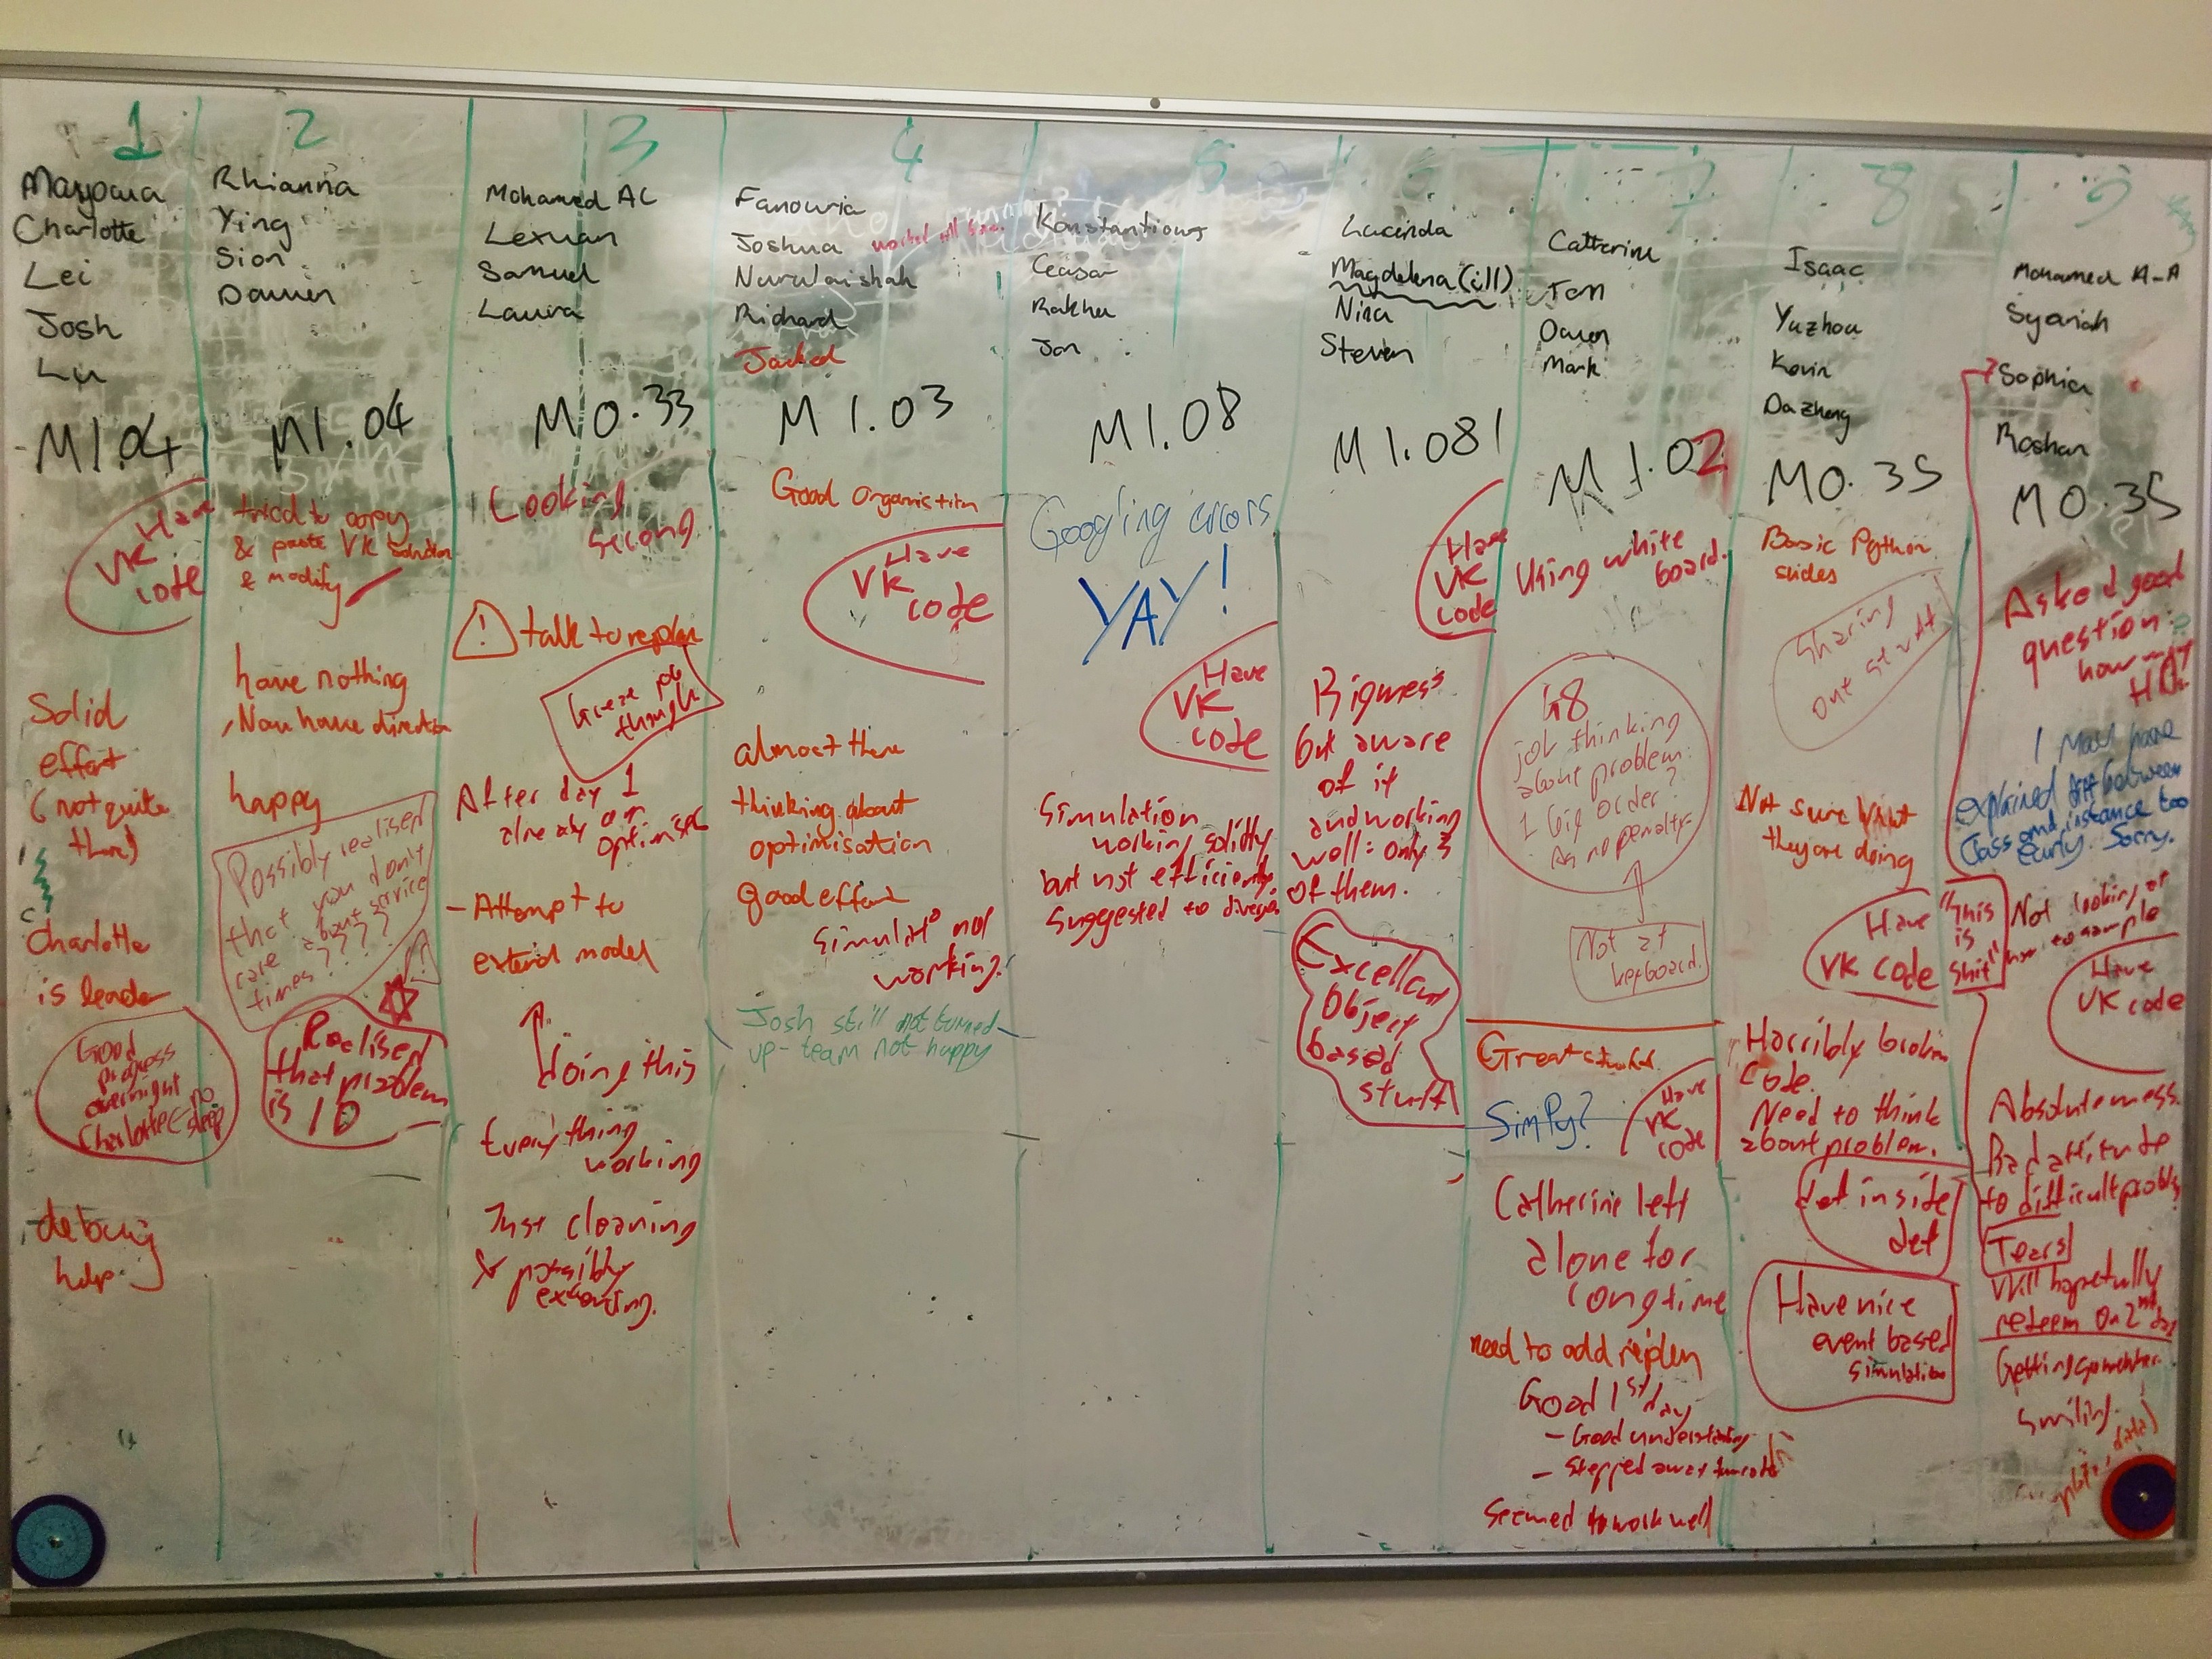 1
Charlotte
Lei
Josh
M1.04
Have
VK
code
Solid
effort
(not quite
there)
Charlotte
is leader
Good
progress
overnight
Charlotte no
sleep
debug
help
2
Rhianna
Ying
Sion
M1.04
tried to copy
& paste VK solution
& modify
have nothing
Now have direction
happy
Possibly realised
that you don't
care about service
times ????
Realised
that problem
is 1D
3
Mohamed AL
Lexuan
Samuel
Laura
M0.33
Looking
strong
! talk to replan
After day 1
already on
optimisat
- Attempt to
extend model
doing this
Everything
working
Just cleaning
& possibly
extending.
4
Fanouria
Joshua
Nurulaishah
Richard
M1.03
Good organistion
Have
VK
code
almost there
thinking about
optimisation
good effort
not
working.
Josh still not turned
up - team not happy
5
Konstantinos
Ceasar
Jon
M1.08
Googling errors
YAY!
Have
VK
code
Simulation
working solidly
but not efficiently.
Suggested to
6
Lucinda
Magdelena (ill)
Nina
Steven
M1.081
Have
VK
code
Bigmess
but aware
of it
and working
well: only 3
of them.
Excellent
Object
based
stuff
7
Catherine
Tom
Owen
Mark
M1.02
Using white
board.
job thinking
about problem:
1 big order?
As no penalty.
Not at
keyboard.
Great
SimPy?
Have
VK
code
Catherine left
alone for
long time
need to add replen
Good 1st day
- Good understanding
- Stepped away from code
Seemed to work well
8
Isaac
Yuzhou
Kevin
Dazheng
M0.35
Basic Python
slides
Sharing
out stuff
Not sure what
they are doing
Have
VK code
Horribly broken
code.
Need to think
about problem.
def inside
def
Have nice
event based
simulation
9
Mohamed A-A
Syariah
Sophia
Roshan
M0.35
Asked good
question:
how
I may have
explained diff between
Class and instance too
early. Sorry.
"This
is
shit"
Not looking at
how to sample
Have
VK code
Absolute mess.
Bad attitude
to difficult problem
Tears!
Will hopefully
redeem on 2nd day
Getting somewhere.
Smiling.